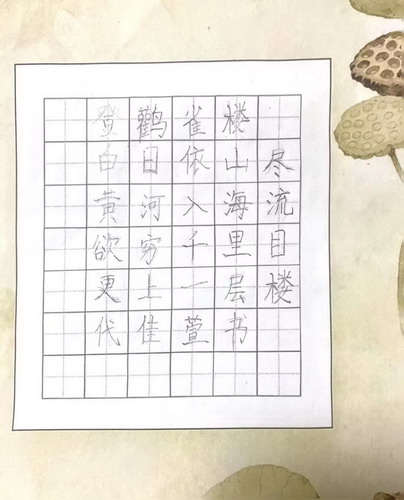 登鹳雀楼
白日依山尽
黄河入海流
欲穷千里目
更上一层楼
代佳萱书